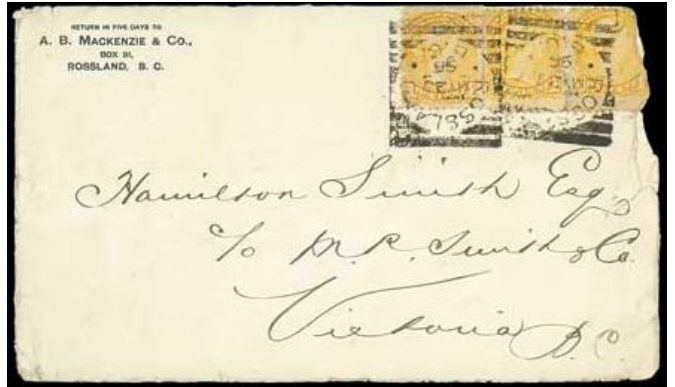 RETURN IN FIVE DAYS TO
A. B. MACKENZIE & CO.,
BOX 91,
ROSSLAND, B. C.
ROSSLA
95
Hamilton Smith Esq
c/o M. R. Smith & Co.
Victoria B. C.